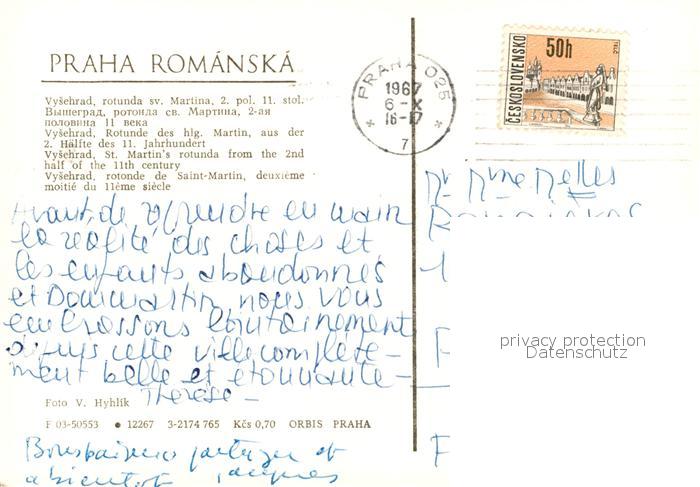 PRAHA ROMÁNSKÁ
Vyšehrad, rotunda sv. Martina, 2. pol. 11. stol.
Вышеград, ротонда св. Мартина, 2-ая
половина 11 века
Vyšehrad, Rotunde des hlg. Martin, aus der
2. Hälfte des 11. Jahrhundert
Vyšehrad, St. Martin's rotunda from the 2nd
half of the 11th century
Vyšehrad, rotonde de Saint-Martin, deuxième
moitié du 11ème siècle
Avant de reprendre en main
la réalité des choses et
les enfants abandonnés
et Dommartin nous vous
embrassons lointainement
depuis cette ville complète-
ment belle et étonnante -
Thérèse -
Foto V. Hyhlík
F 03-50553 • 12267 3-2174 765 Kčs 0,70 ORBIS PRAHA
Bons baisers et
à bientôt Jacques
PRAHA 025
1967
6-X
16-17
7
ČESKOSLOVENSKO
50h
TELČ
Mr Mme Melles
privacy protection
Datenschutz